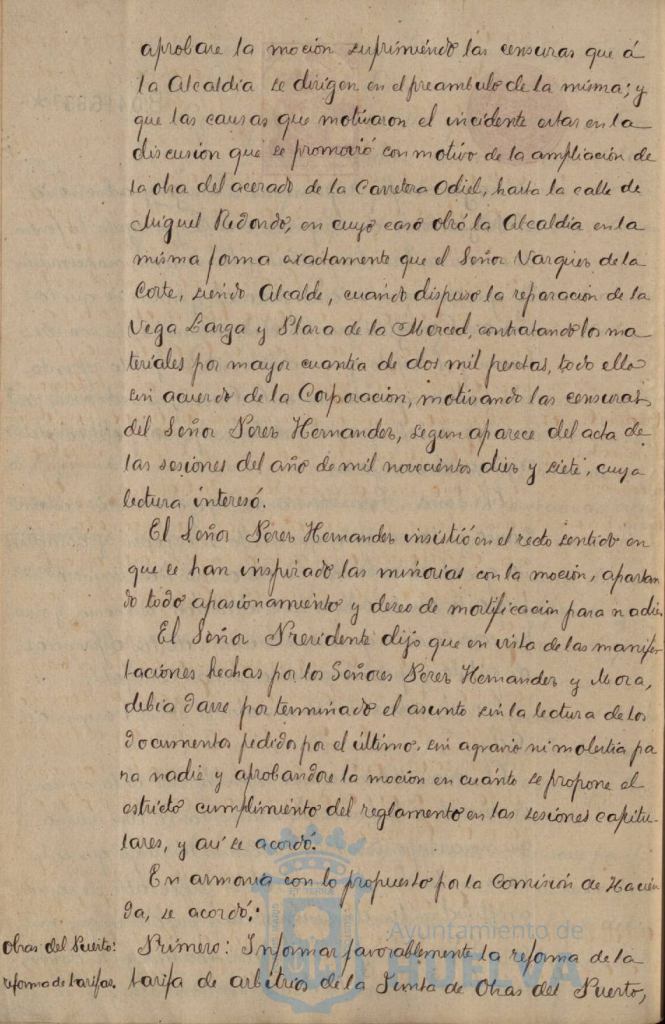 aprobare la moción suprimiendo las censuras que á
la Alcaldia se dirigen en el preambulo de la misma; y
que las causas que motivaron el incidente estas en la
discusion que se promovió con motivo de la ampliación de
la obra del acerado de la Carretera Odiel, hasta la calle de
Miguel Redondo, en cuyo caso obró la Alcaldia en la
misma forma exactamente que el Señor Vazquez de la
Corte, siendo Alcalde, cuando dispuso la reparacion de la
Vega Larga y Plaza de la Merced, contratando los ma
teriales por mayor cuantia de dos mil pesetas, todo ello
sin acuerdo de la Corporación, motivando las censuras
del Señor Perez Hernandez, segun aparece del acta de
las sesiones del año de mil novecientos diez y siete, cuya
lectura interesó.
El Señor Perez Hernandez insistió en el recto sentido en
que se han inspirado las minorias con la moción, apartan
do todo apasionamiento y deseo de mortificacion para nadie.
El Señor Presidente dijo que en vista de las manifes
taciones hechas por los Señores Perez Hernandez y Mora,
debia darse por terminado el asunto sin la lectura de los
documentos pedidos por el último, sin agravio ni molestia pa
ra nadie y aprobandose la moción en cuanto se propone el
estricto cumplimiento del reglamento en las sesiones capitu-
lares, y asi se acordó.
En armonia con lo propuesto por la Comisión de Hacien
da, se acordó:
Obras del Puerto:
reforma de tarifas.
Primero: Informar favorablemente la reforma de la
tarifa de arbitrios de la Junta de Obras del Puerto,
Ayuntamiento de
HUELVA